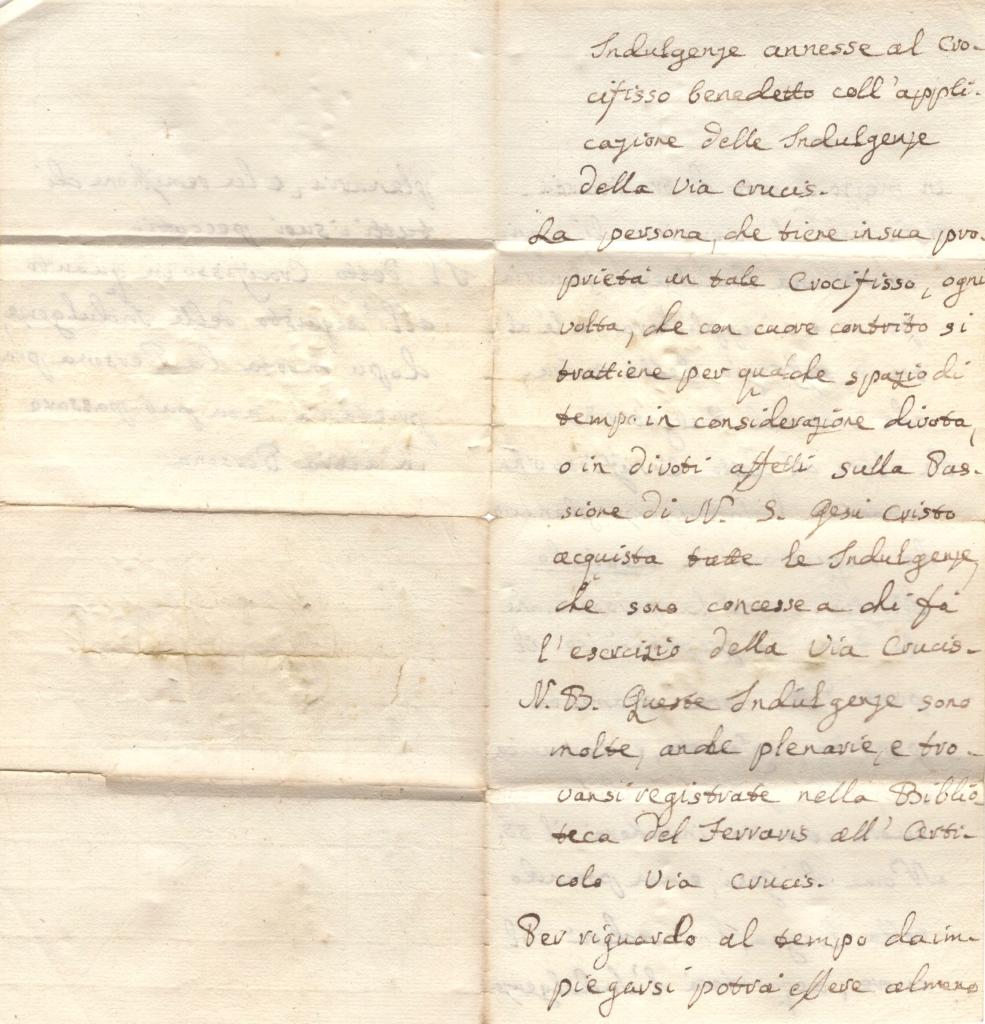 Indulgenze annesse al Cro-
cifisso benedetto coll'appli-
cazione delle Indulgenze
della Via Crucis.
La persona, che tiene in sua pro-
prietà un tale Crocifisso, ogni
volta, che con cuore contrito si
trattiene per qualche spazio di
tempo in considerazione divota,
o in divoti affetti sulla Pas-
sione di N. S. Gesù Cristo
acquista tutte le Indulgenze,
che sono concesse a chi fà
l'esercizio della Via Crucis.
N. B. Queste Indulgenze sono
molte, anche plenarie, e tro-
vansi registrate nella Biblio
teca del Ferraris all'Arti-
colo Via Crucis.
Per riguardo al tempo da im-
piegarsi potrà essere almeno